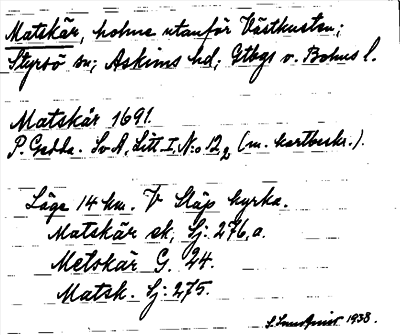 Matskär, holme utanför Västkusten;
Styrsö sn; Askims hd; Gtbgs o. Bohus l.
Matskär 1691.
P. Gedda. Sv A, Litt. I, N:o 12 2 (m. kartbeskr.).
Läge 14 km. V Släp kyrka.
Matskär sk, Sj: 276, a.
Metskär G. 24.
Matsk. Sj: 275.
1933.